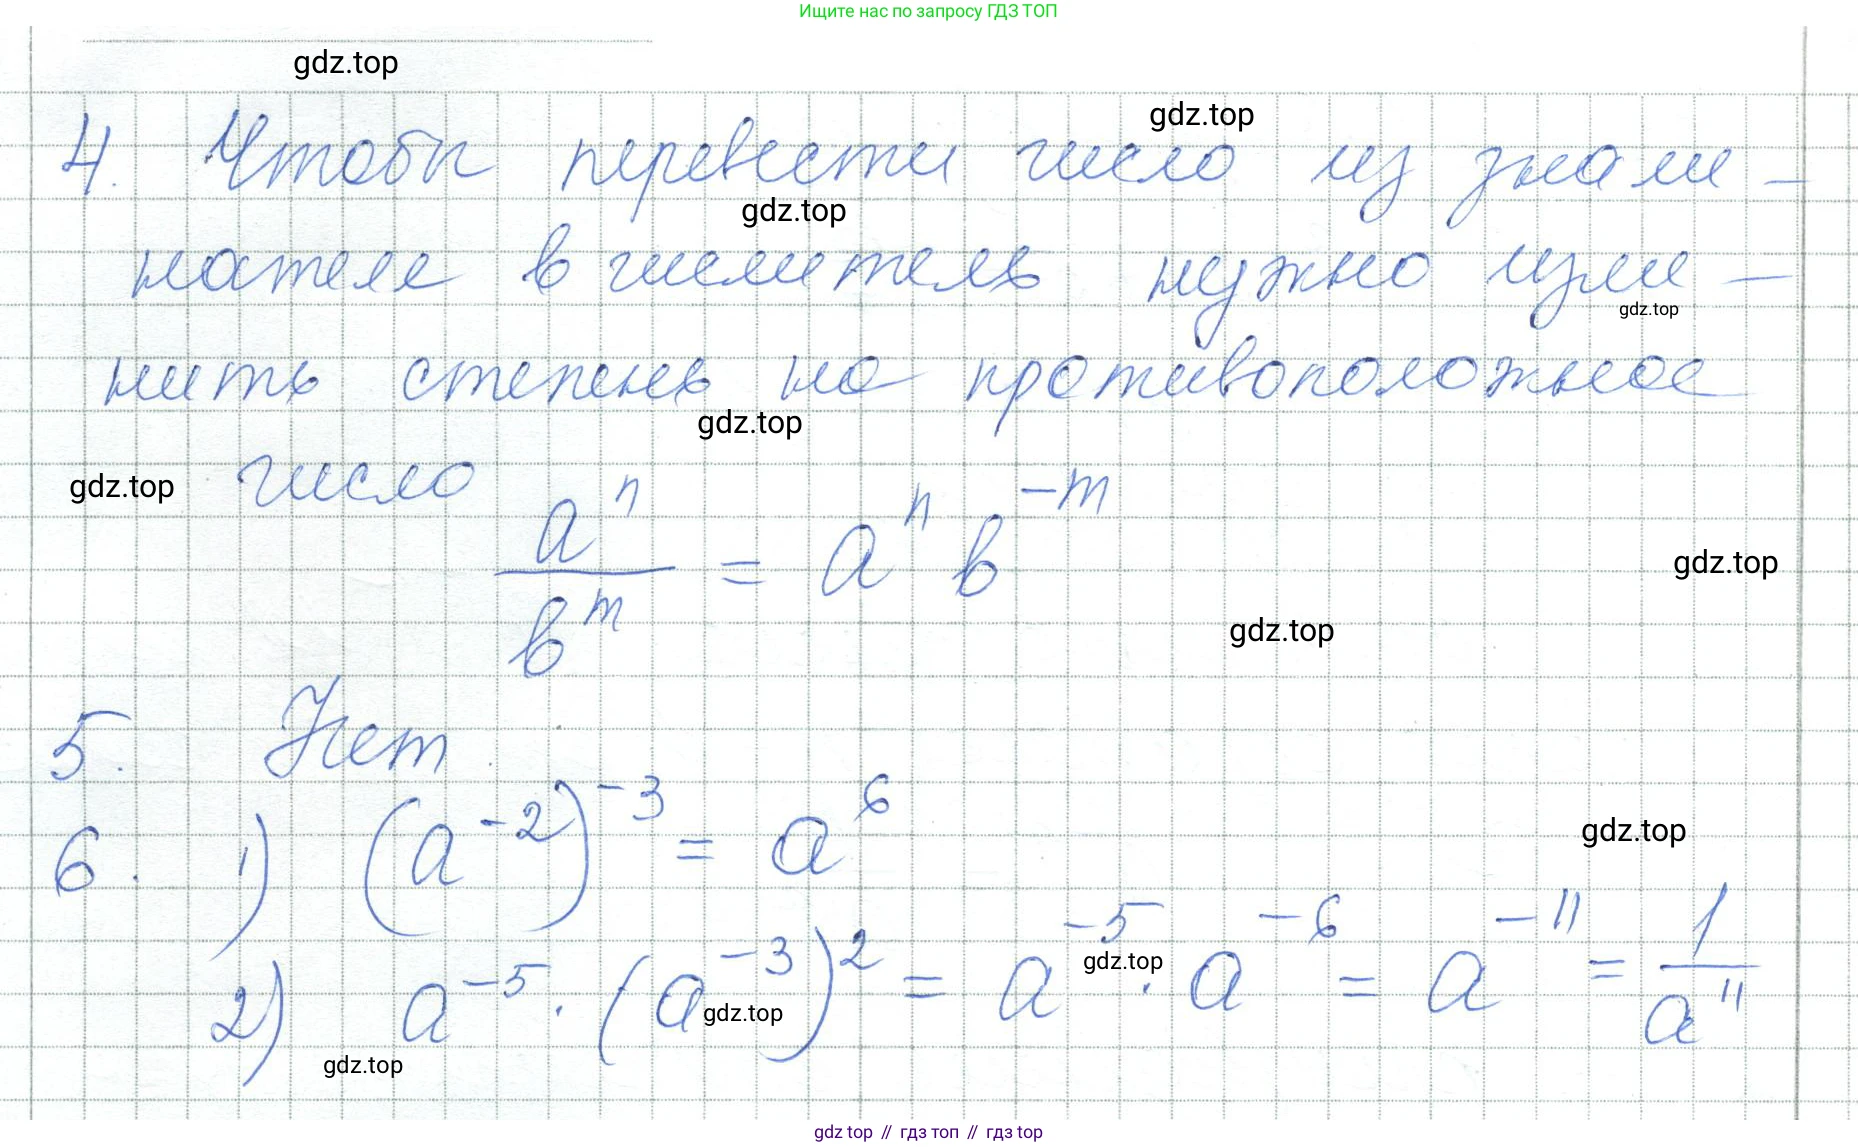 Ищите нас по запросу ГДЗ ТОП
gdz.top
gdz.top
4. Чтобы перевести число из знаме-
gdz.top
нателе в числитель нужно изме-
gdz.top
нить степень на противоположное
gdz.top
gdz.top число
a^n / b^m = a^n b^-m
gdz.top
gdz.top
5. Нет
6. 1) (a^-2)^-3 = a^6
gdz.top
2) a^-5 · (a^-3)^2 = a^-5 · a^-6 = a^-11 = 1 / a^11
gdz.top
gdz.top
gdz.top
gdz top // гдз топ // гдз top